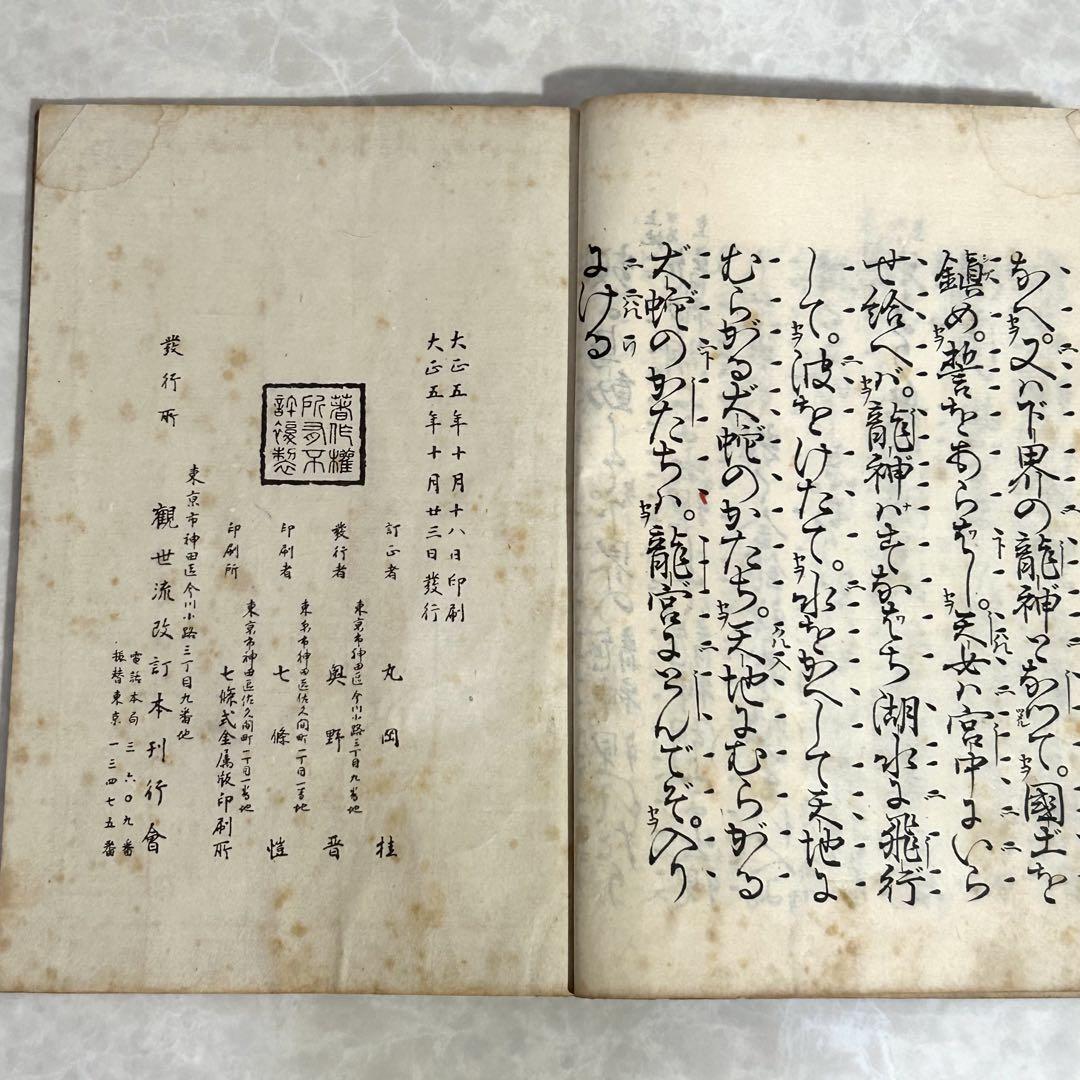 なへ。又ハ下界の龍神となつて。國土を
鎮め。誓をあらはし。天女ハ宮中にいら
せ給へバ。龍神ハすなはち湖水に飛行
して。波をけたて。水をかへして天地に
むらがる大蛇のかたち。天地にむらがる
大蛇のかたちハ。龍宮にとんでぞ。入り
にける
大正五年十月十八日印刷
大正五年十月廿三日發行
著作權
所有不
許複製
訂正者 丸岡桂
東京市神田區今川小路三丁目九番地
發行者 奥野晋
東京市神田區佐久間町一丁目一番地
印刷者 七條愷
東京市神田區佐久間町一丁目一番地
印刷所 七條式金属版印刷所
發行所
東京市神田區今川小路三丁目九番地
觀世流改訂本刊行會
電話本局三六〇九番
振替東京一三四七五番